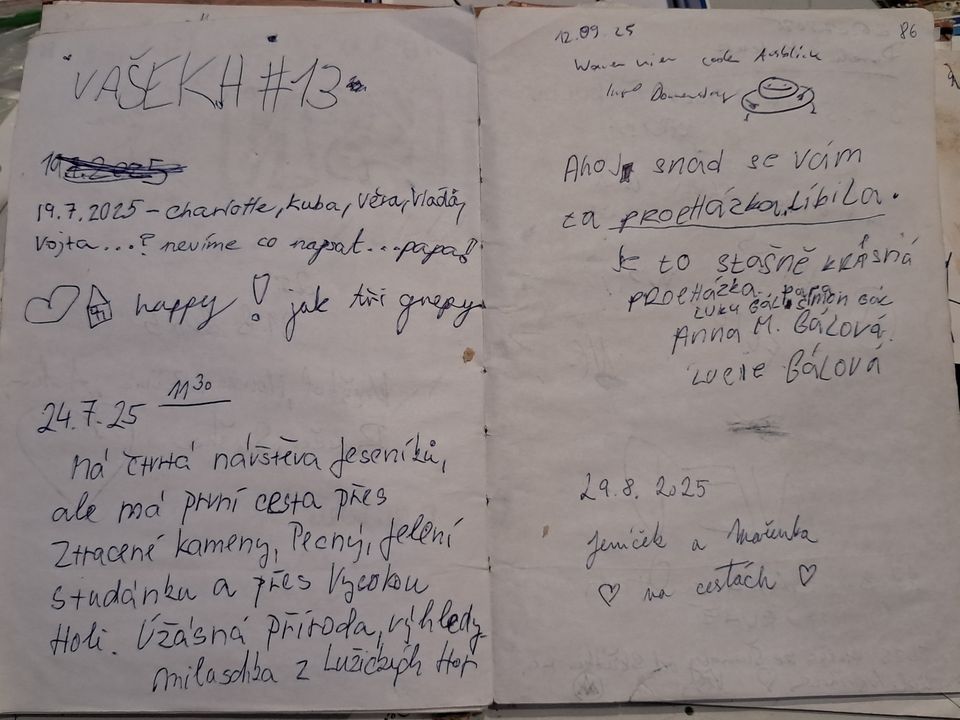 VAŠEKH #13
19.7.2025 – charlotte, Kuba, Věra, Vlaďa,
Vojta...? nevíme co napsat...papa!
happy! jak tři grepy
24.7.25 11³⁰
Má čtvrtá návštěva Jeseníků,
ale má první cesta přes
Ztracené kameny, Pecný, Jelení
studánku a přes Vysokou
Holi. Úžásná příroda, výhledy
milaschka z Lužických Hor
86
12.09.25
Waren hier Ausblick
Ahoj snad se vám
ta procházka líbila.
Je to stašně krásná
procházka. papa
Luky Gál Šimon Gál
Anna M. Gálová.
Lucie Gálová
29.8.2025
Jeníček a Mařenka
♡ na cestách ♡